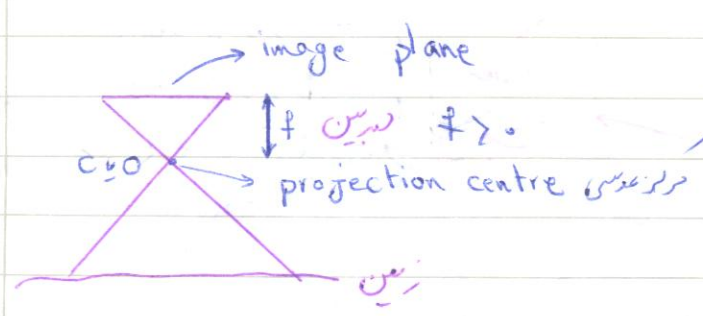 image plane
f دوربین f > 0
C یا O
projection centre مرکز عدسی
زمین